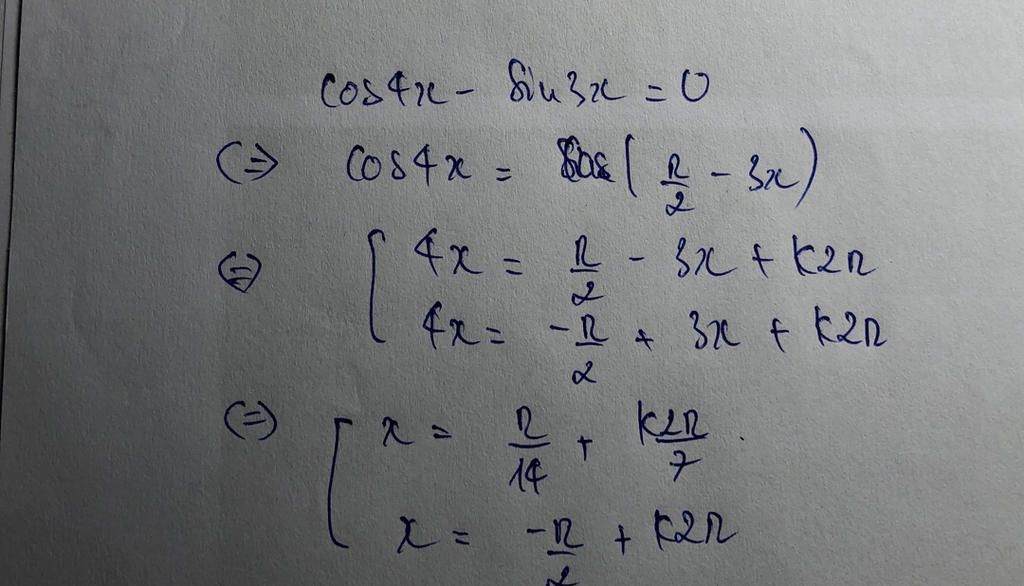 cos4x - sin3x = 0
(=) cos4x = cos(π/2 - 3x)
(=) [ 4x = π/2 - 3x + k2π
4x = -π/2 + 3x + k2π
(=) [ x = π/14 + k2π/7
x = -π/2 + k2π